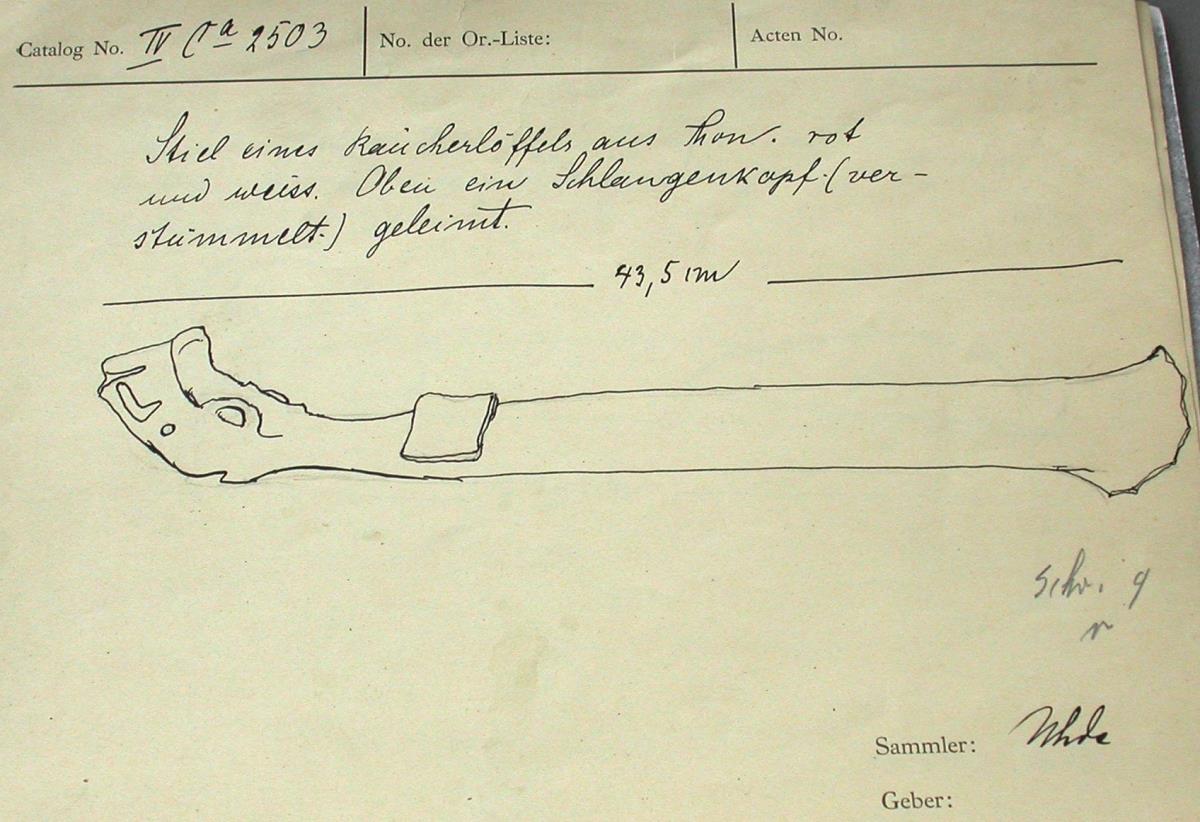 Catalog No. IV Ca 2503 No. der Or.-Liste: Acten No.
Stiel eines Räucherlöffels aus Thon. rot
und weiss. Oben ein Schlangenkopf. (ver-
stümmelt.) geleimt.
43,5 cm
Schr. 9
Sammler: Uhde
Geber: